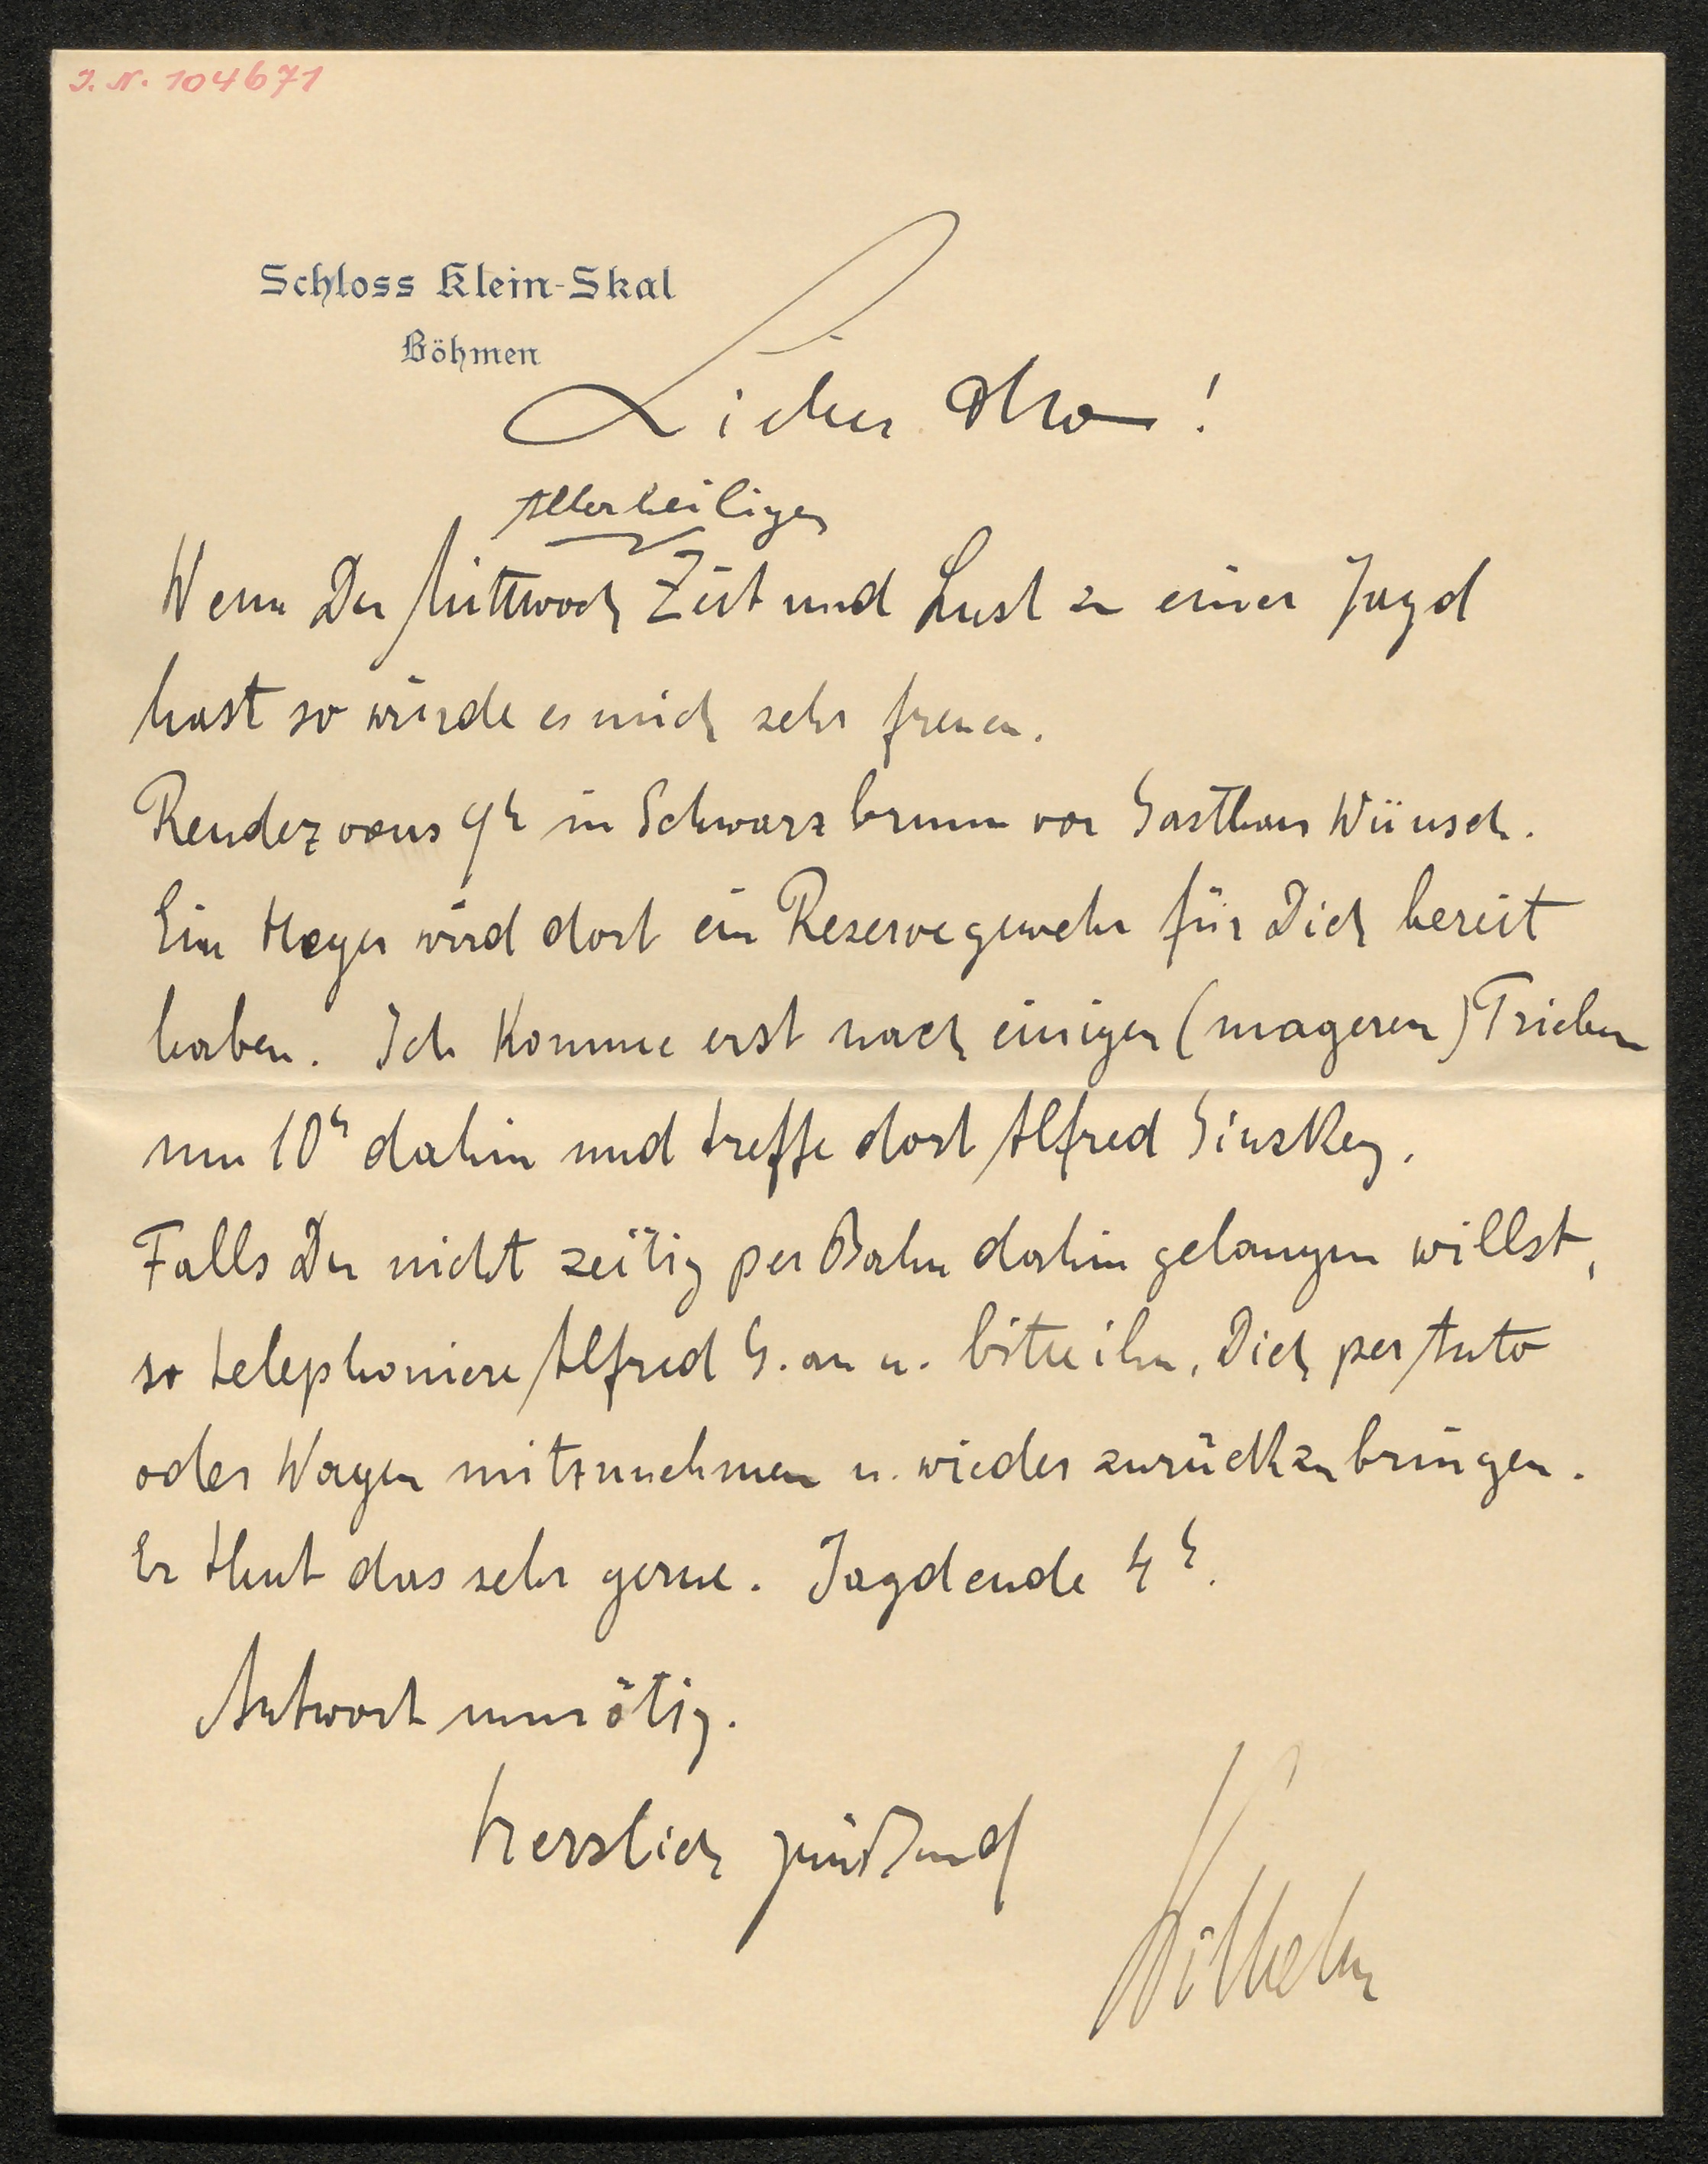 J. N. 104671
Schloss Klein-Skal
Böhmen
Lieber Otto!
Allerheiligen
Wenn Du Mittwoch Zeit und Lust zu einer Jagd
hast so würde es mich sehr freuen.
Rendezvous 9h in Schwarzbrunn vor Gasthaus Wünsch.
Ein Heger wird dort ein Reservegewehr für Dich bereit
haben. Ich komme erst nach einigen (mageren) Trieben
um 10h dahin und treffe dort Alfred Ginzkey.
Falls Du nicht zeitig per Bahn dahin gelangen willst,
so telephoniere Alfred G. an u. bitte ihn, Dich per Auto
oder Wagen mitzunehmen u. wieder zurückzubringen.
Er thut das sehr gerne. Jagdende 4h.
Antwort unnötig.
Herzlich grüßend
Wilhelm